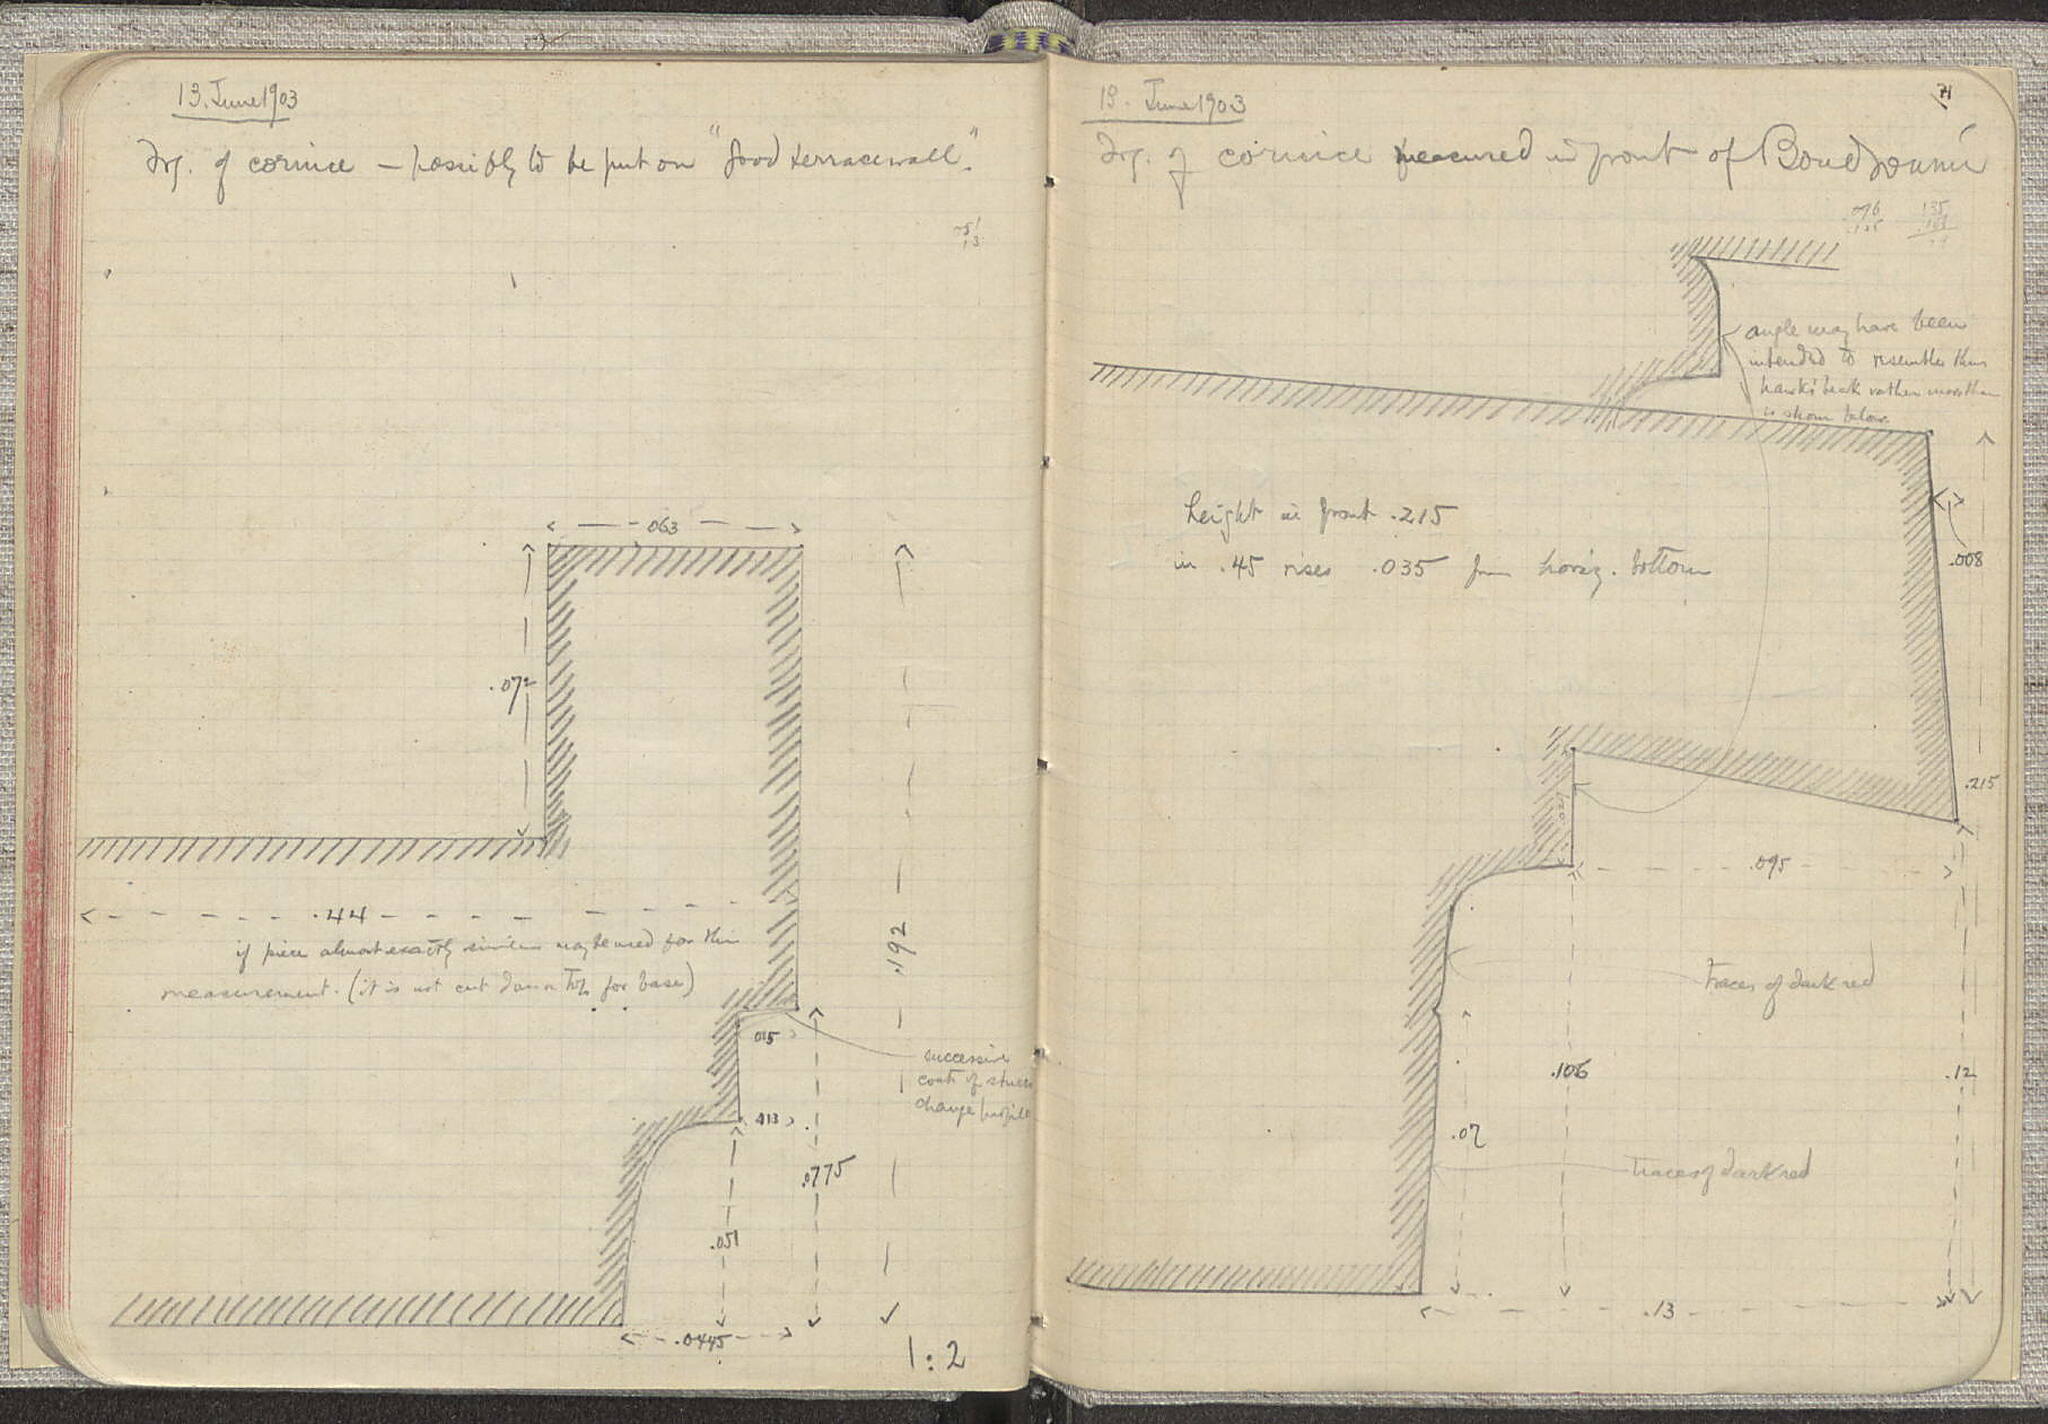 13. June 1903
Frg. of cornice – possibly to be put on "good terrace wall".
.063
.072
.44
if piece almost exactly similar may be used for this
measurement. (it is not cut down on top for base)
.192
.015
successive
coats of stucco
change profile
.013
.0775
.051
.0445
1:2
13. June 1903
71
Frg. of cornice measured in front of
.096
135
angle may have been
intended to resemble this
hawk's beak rather more than
is shown below
height in front .215
in .45 rises .035 from horiz. bottom
.008
.215
.095
traces of dark red
.106
.12
.07
traces of dark red
.13